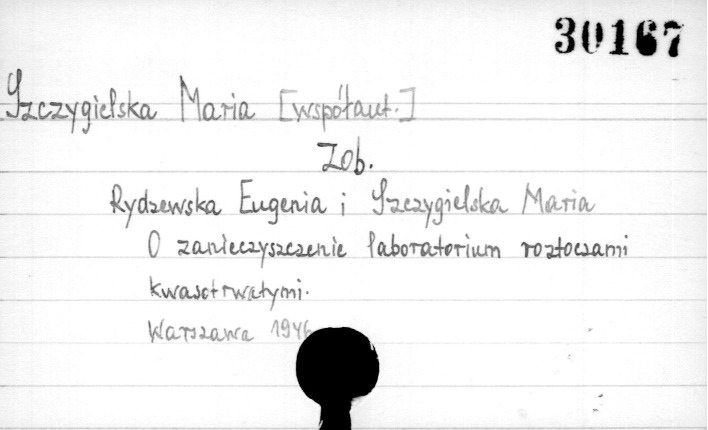 30167
Szczygielska Maria [współaut.]
Zob.
Rydzewska Eugenia i Szczygielska Maria
O zanieczyszczenie laboratorium roztoczami
kwasotrwałymi.
Warszawa 1946